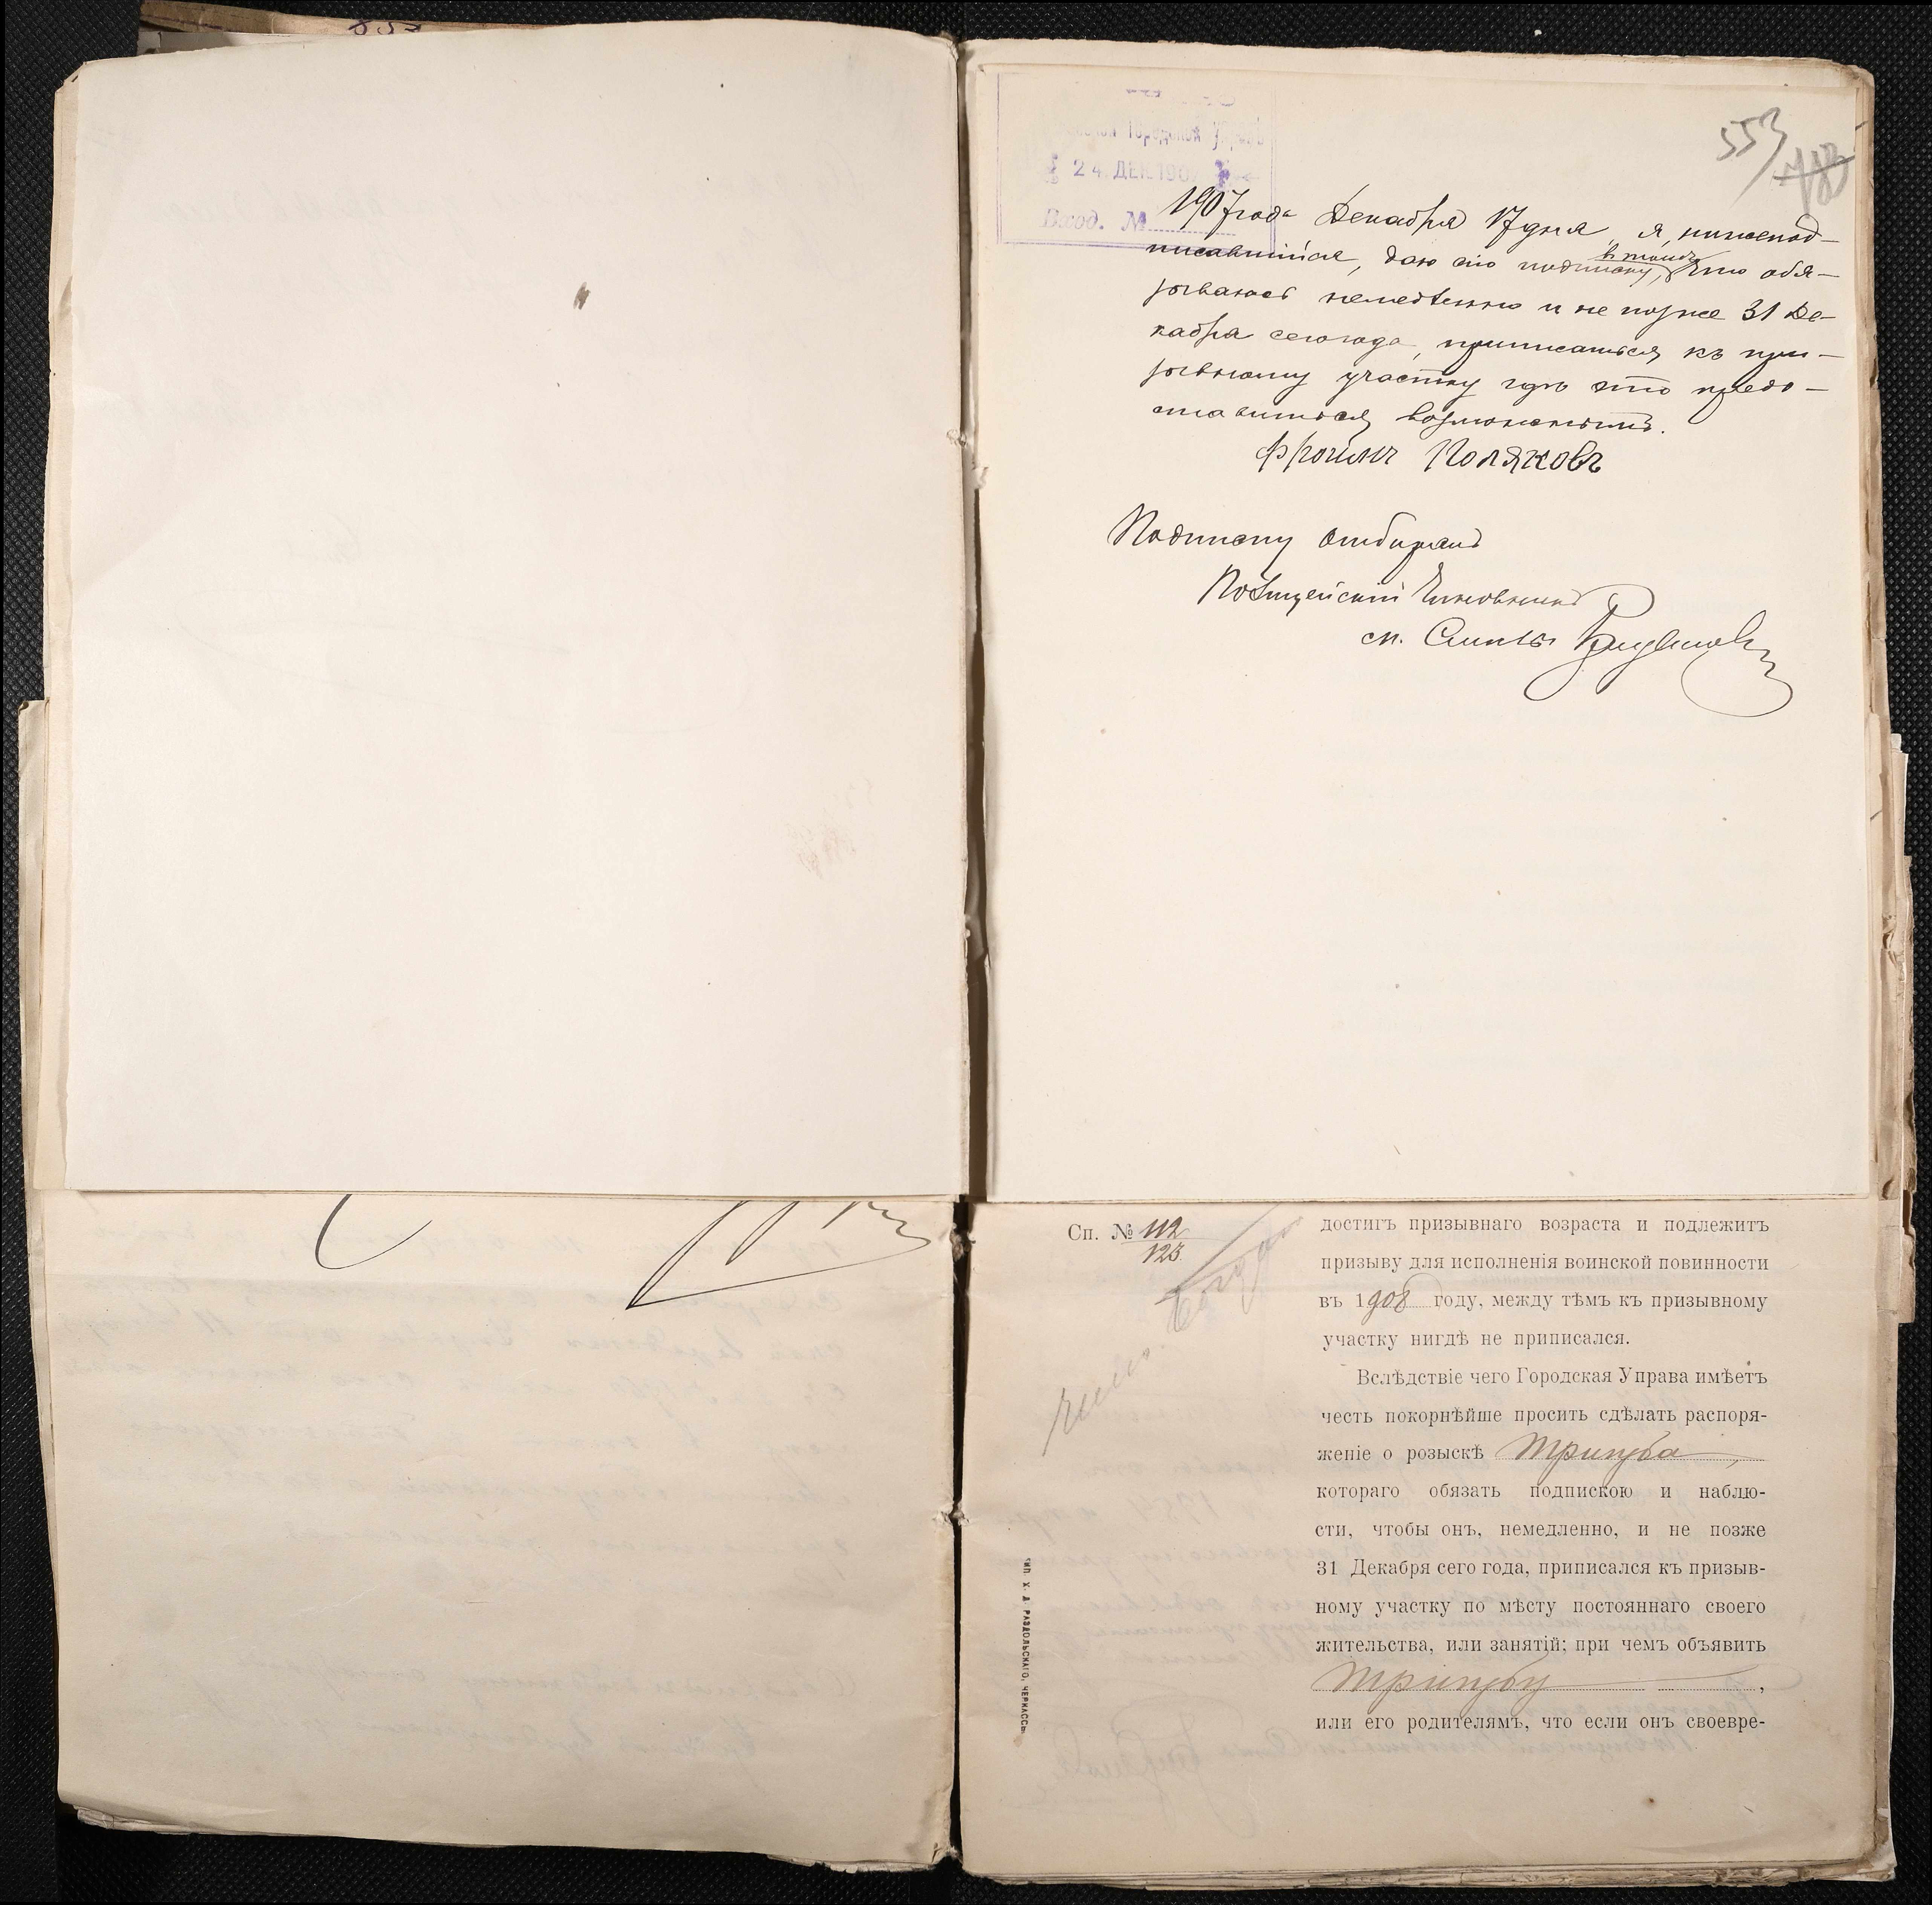 553
Городской
24 ДЕК. 190
Вход. №
1907 года Декабря 17 дня, я, нижепод-
писавшійся, даю сію подписку, в томъ, что обя-
зываюсь немедленно и не позже 31 Де-
кабря сего года, приписаться къ при-
зывному участку гдѣ это предо-
ставиться возможнымъ.
Фроимъ Поляковъ
Подписку отбиралъ
Полицейскій Чиновникъ
Сп. № 112
123
достигъ призывнаго возраста и подлежитъ
призыву для исполненія воинской повинности
въ 1908 году, между тѣмъ къ призывному
участку нигдѣ не приписался.
Вслѣдствіе чего Городская Управа имѣетъ
честь покорнѣйше просить сдѣлать распоря-
женіе о розыскѣ Трипуба,
котораго обязать подпискою и наблю-
сти, чтобы онъ, немедленно, и не позже
31 Декабря сего года, приписался къ призыв-
ному участку по мѣсту постояннаго своего
жительства, или занятій; при чемъ объявить
Трипубу,
или его родителямъ, что если онъ своевре-
ТИП. Х. Д. РАЗДОЛЬСКАГО, ЧЕРКАССЫ.